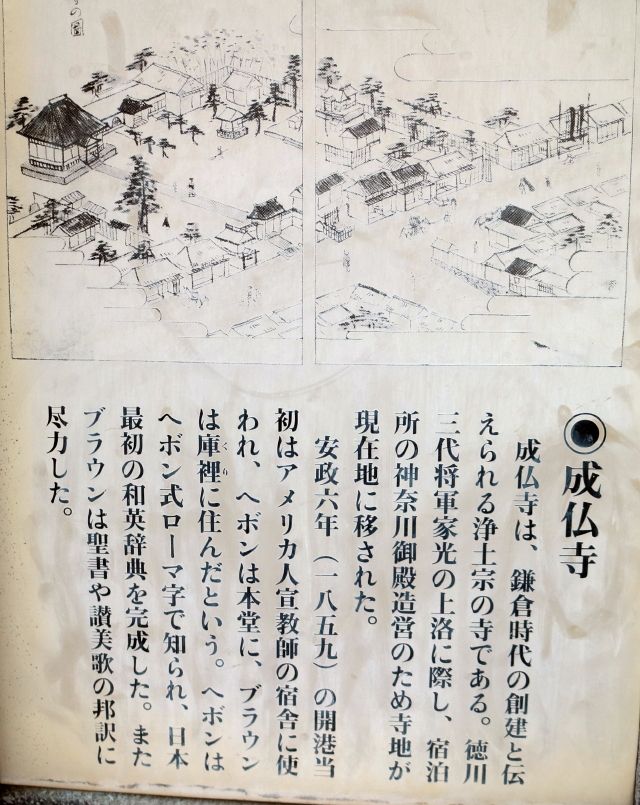 の図
成仏寺
成仏寺は、鎌倉時代の創建と伝
えられる浄土宗の寺である。徳川
三代将軍家光の上洛に際し、宿泊
所の神奈川御殿造営のため寺地が
現在地に移された。
安政六年（一八五九）の開港当
初はアメリカ人宣教師の宿舎に使
われ、ヘボンは本堂に、ブラウン
は庫裡くりに住んだという。ヘボンは
ヘボン式ローマ字で知られ、日本
最初の和英辞典を完成した。また
ブラウンは聖書や讃美歌の邦訳に
尽力した。